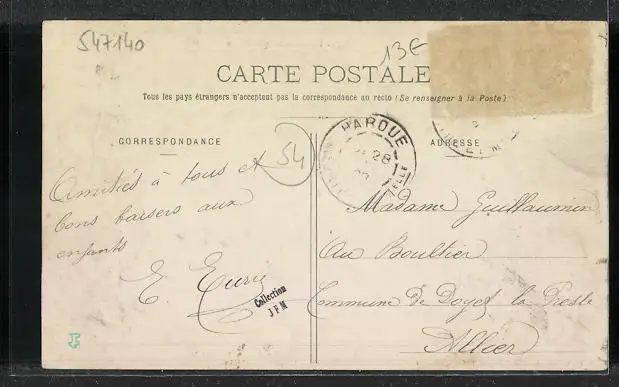 547140
13€
CARTE POSTALE
Tous les pays étrangers n'acceptent pas la correspondance au recto (Se renseigner à la Poste)
CORRESPONDANCE
ADRESSE
54
PAROUE
28
ELLE
Amitiés à tous et
bons baisers aux
enfants
E
Collection
JFM
Madame Guillaumin
Au Boultier
Commune de Doyet la Presle
Allier